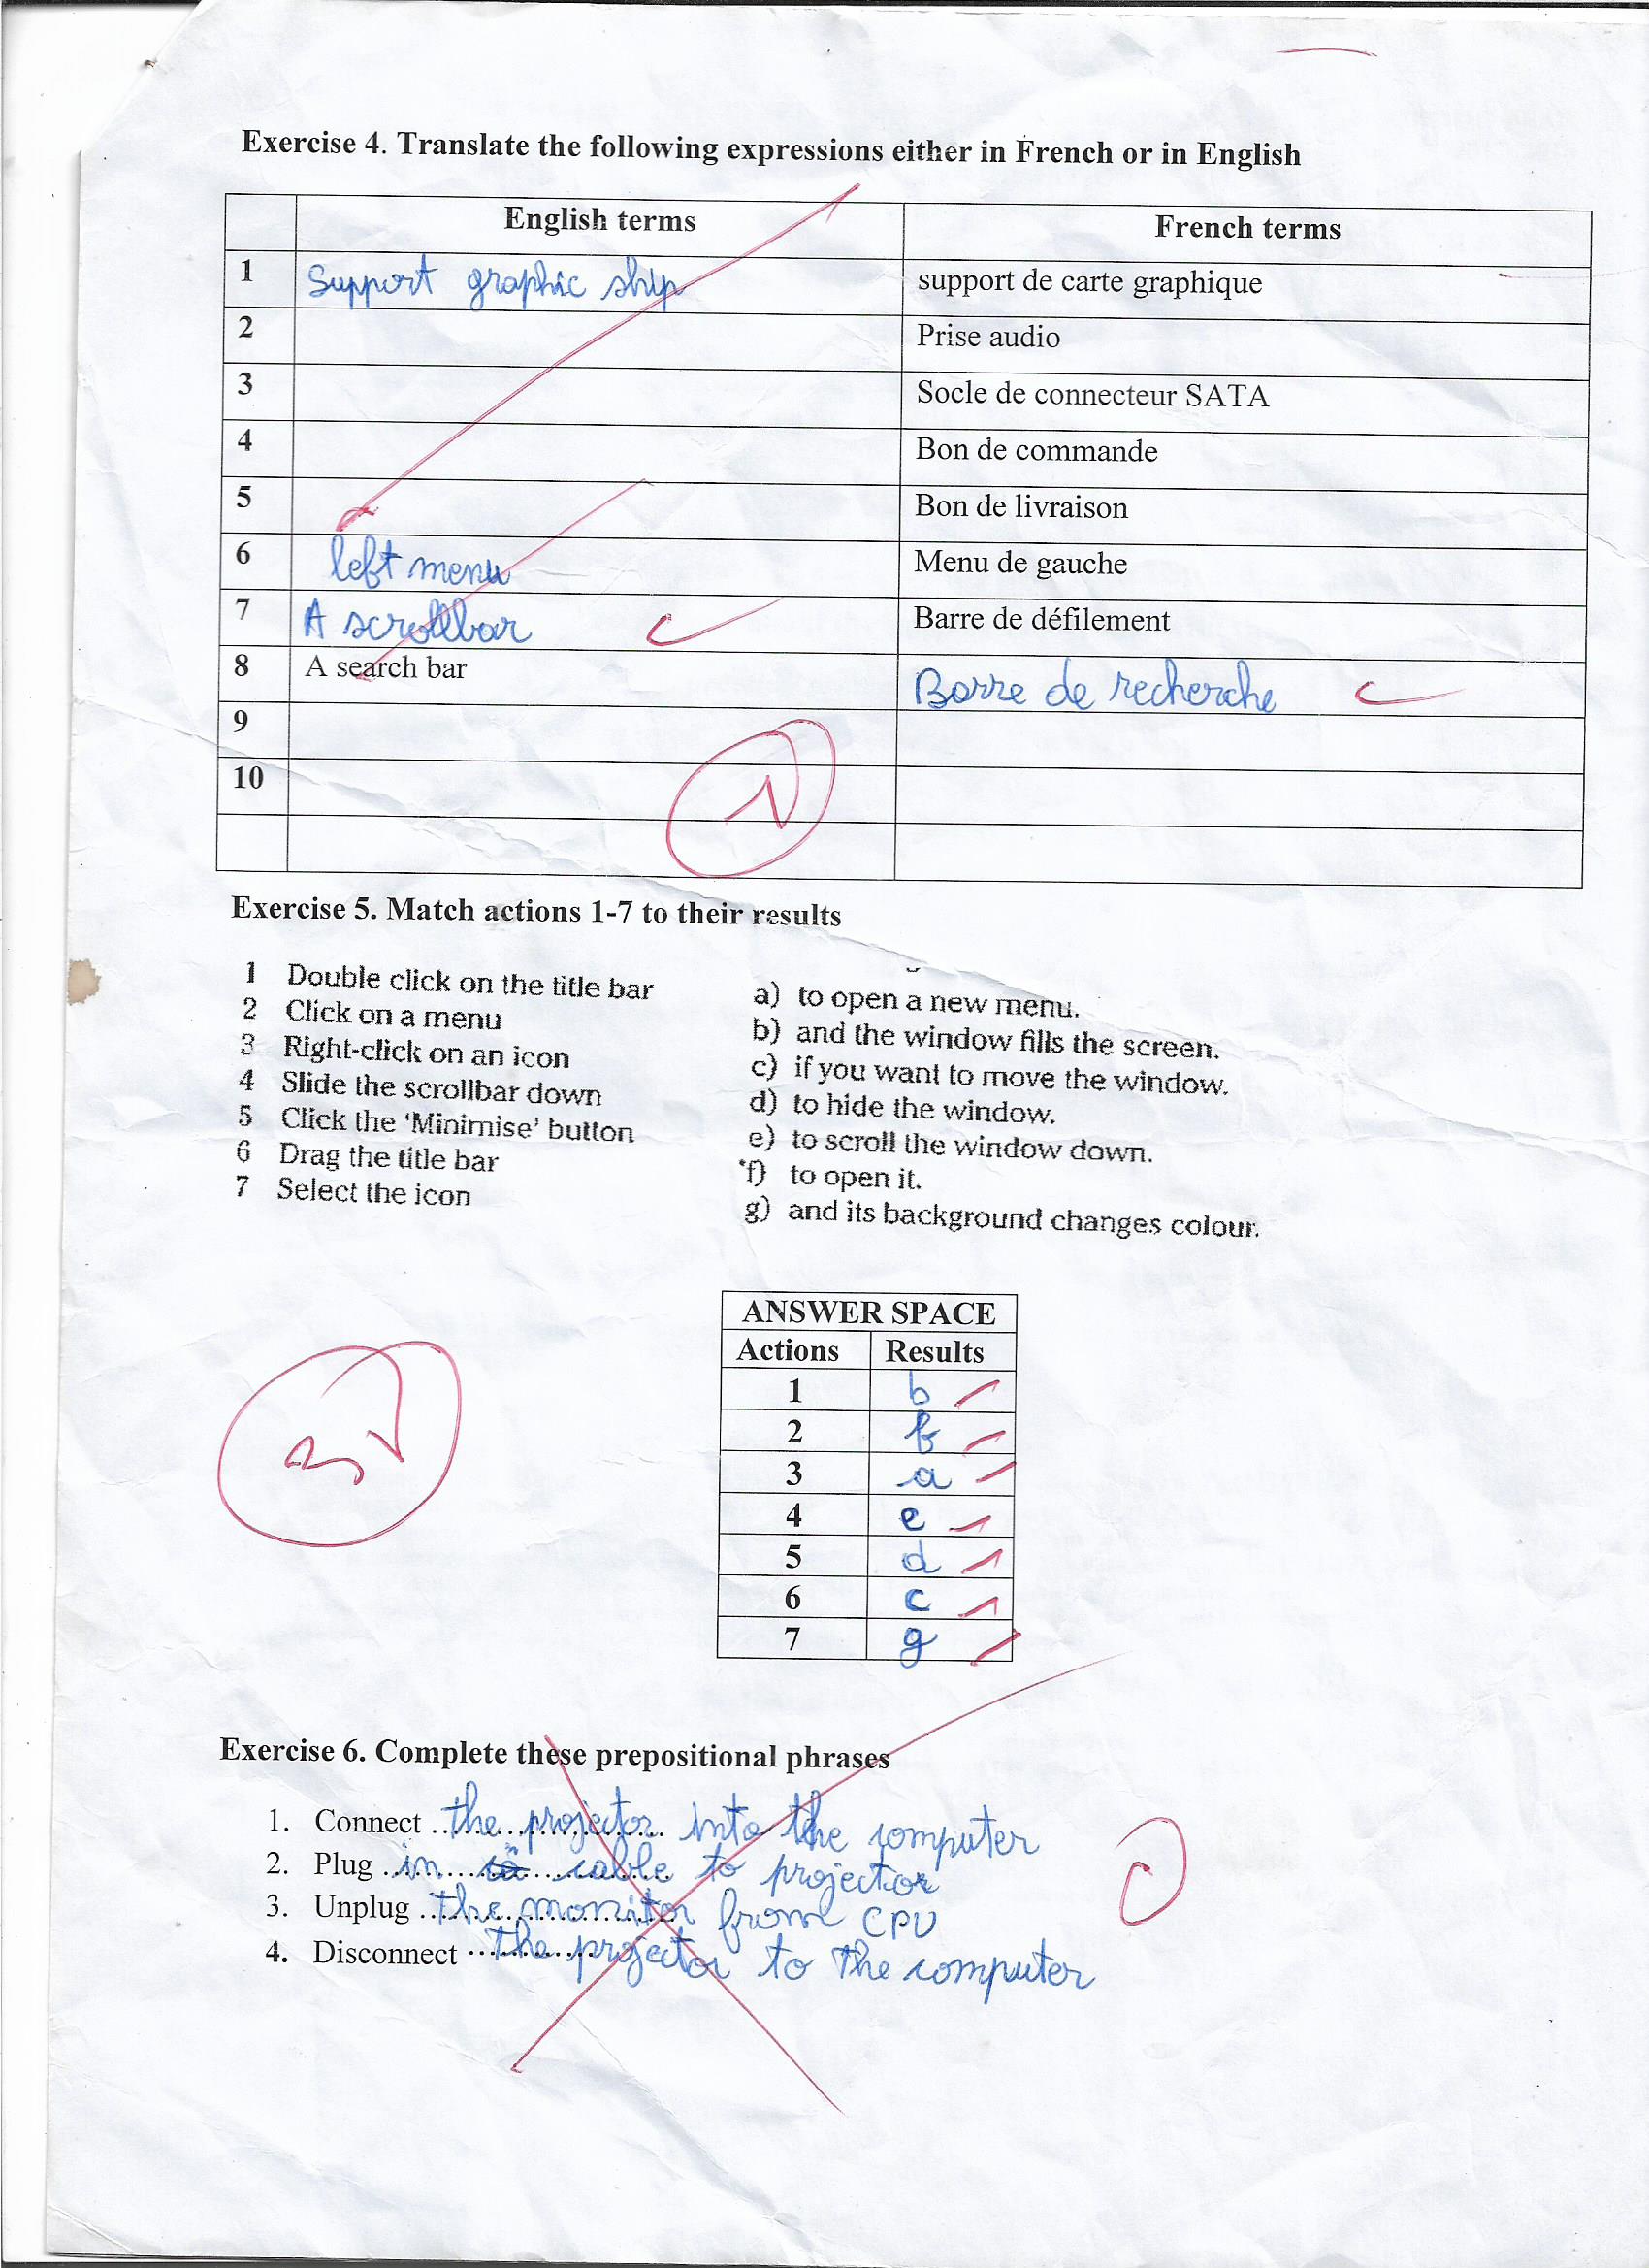 Exercise 4. Translate the following expressions either in French or in English
English terms French terms
1 Support graphic ship support de carte graphique
2 Prise audio
3 Socle de connecteur SATA
4 Bon de commande
5 Bon de livraison
6 left menu Menu de gauche
7 A scrollbar Barre de défilement
8 A search bar Barre de recherche
9
10
1
Exercise 5. Match actions 1-7 to their results
1 Double click on the title bar
2 Click on a menu
3 Right-click on an icon
4 Slide the scrollbar down
5 Click the 'Minimise' button
6 Drag the title bar
7 Select the icon
a) to open a new menu.
b) and the window fills the screen.
c) if you want to move the window.
d) to hide the window.
e) to scroll the window down.
f) to open it.
g) and its background changes colour.
ANSWER SPACE
Actions Results
1 b
2 f
3 a
4 e
5 d
6 c
7 g
Exercise 6. Complete these prepositional phrases
1. Connect the projector into the computer
2. Plug in cable to projector
3. Unplug the monitor from CPU
4. Disconnect the projector to the computer
0